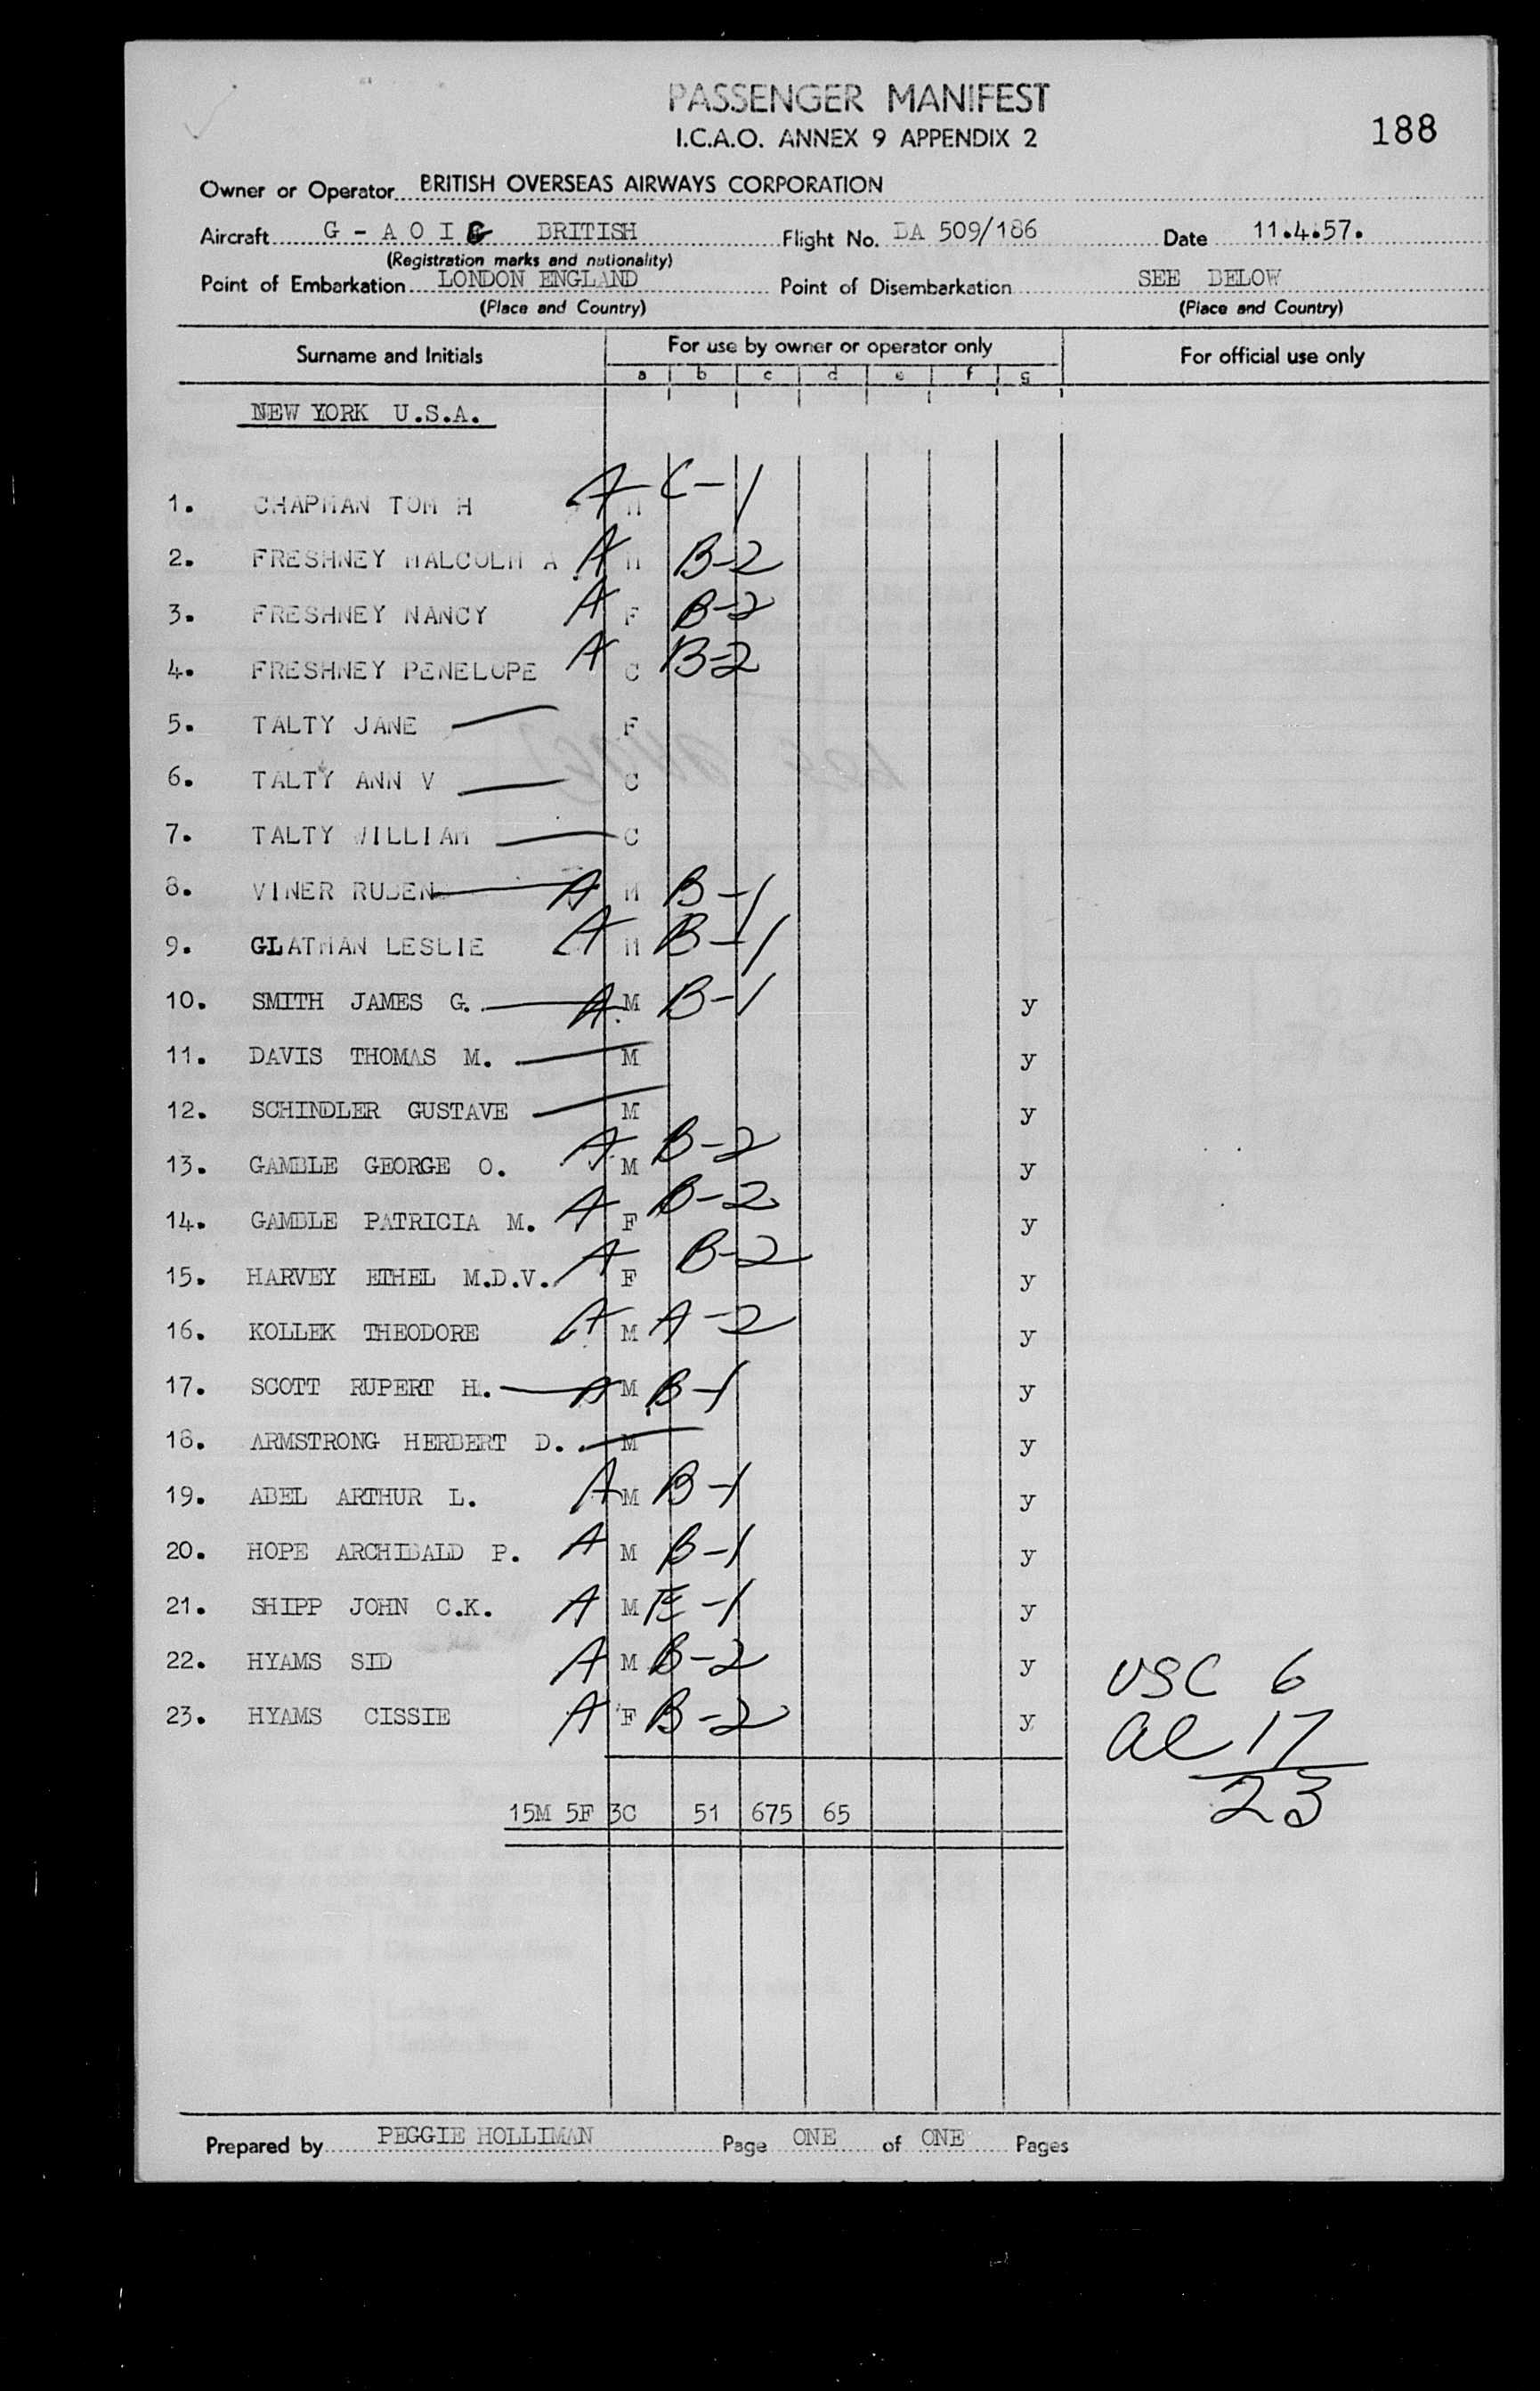 PASSENGER MANIFEST
I.C.A.O. ANNEX 9 APPENDIX 2
188
Owner or Operator BRITISH OVERSEAS AIRWAYS CORPORATION
Aircraft G - A O I G BRITISH Flight No. DA 509/186 Date 11.4.57.
(Registration marks and nationality)
Point of Embarkation LONDON ENGLAND Point of Disembarkation SEE BELOW
(Place and Country) (Place and Country)
Surname and Initials For use by owner or operator only For official use only
a b c d e f g
NEW YORK U.S.A.
1. CHAPMAN TOM H A M C-1
2. FRESHNEY MALCOLM A A M B-2
3. FRESHNEY NANCY A F B-2
4. FRESHNEY PENELOPE A C B-2
5. TALTY JANE — F
6. TALTY ANN V — C
7. TALTY WILLIAM — C
8. VINER RUBEN — A M B-1
9. GLATMAN LESLIE A M B-1
10. SMITH JAMES G. — A M B-1 y
11. DAVIS THOMAS M. — M y
12. SCHINDLER GUSTAVE — M y
13. GAMBLE GEORGE O. A M B-2 y
14. GAMBLE PATRICIA M. A F B-2 y
15. HARVEY ETHEL M.D.V. A F B-2 y
16. KOLLEK THEODORE A M A-2 y
17. SCOTT RUPERT H. — A M B-1 y
18. ARMSTRONG HERBERT D. — M y
19. ABEL ARTHUR L. A M B-1 y
20. HOPE ARCHIBALD P. A M B-1 y
21. SHIPP JOHN C.K. A M E-1 y
22. HYAMS SID A M B-2 y
23. HYAMS CISSIE A F B-2 y
USC 6
al 17
23
15M 5F 3C 51 675 65
Prepared by PEGGIE HOLLIMAN Page ONE of ONE Pages